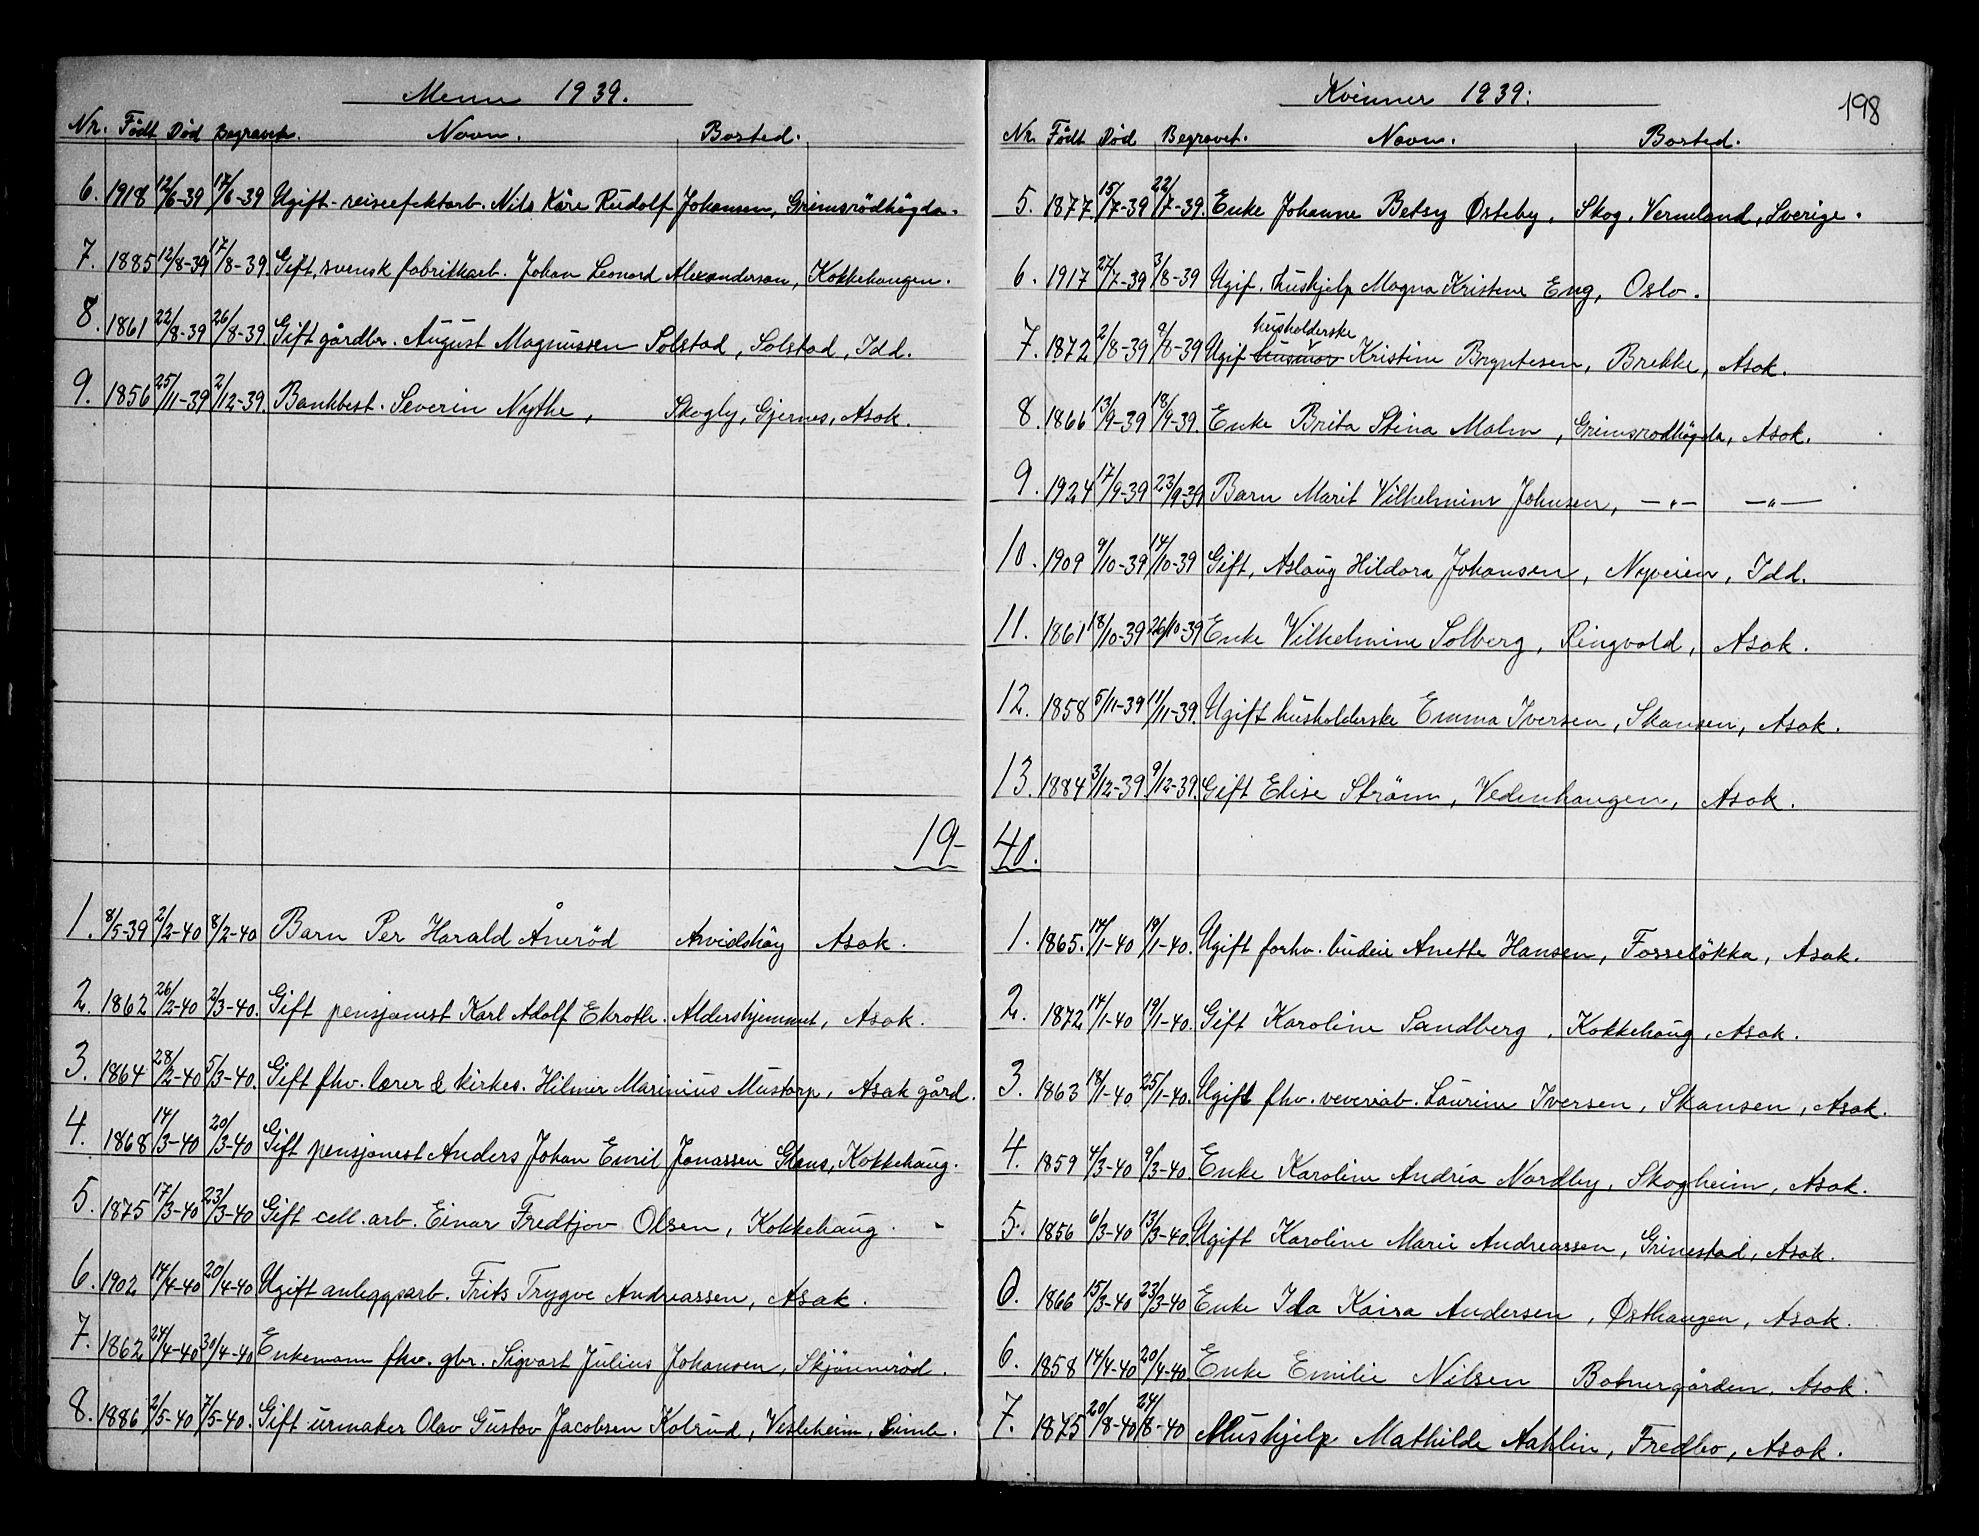 Menn 1939.
Nr. Födt Död Begravet. Navn. Bosted.
6. 1918 12/6-39 17/6-39 Ugift-reiseefektarb. Nils Kåre Rudolf Johansen, Grimsrödhögda.
7. 1885 12/8-39 17/8-39. Gift, svensk fabrikkarb. Johan Leonard Alexanderson, Kokkehaugen.
8. 1861 22/8-39 26/8-39 Gift gårdbr. August Magnussen Solstad, Solstad, Idd.
9. 1856 25/11-39 2/12-39. Bankbest. Severin Nythe, Skogly, Gjernes, Asak.
19-
1. 8/5-39 2/2-40 8/2-40 Barn Per Harald Åneröd Arvidshöy Asak.
2. 1862 26/2-40 2/3-40. Gift pensjonist Karl Adolf Ekroth. Aldershjemmet, Asak.
3. 1864 28/2-40 5/3-40. Gift fhv. lærer & kirkes. Hilmer Marinius Mustorp, Asak gård.
4. 1868 14/3-40 20/3-40 Gift pensjonest Anders Johan Emil Jonassen Glens, Kokkehaug.
5. 1875 17/3-40 23/3-40 Gift cell. arb. Einar Fredtjov Olsen, Kokkehaug.
6. 1902 14/4-40 20/4-40 Ugift anleggsarb. Frits Trygve Andreassen, Asak.
7. 1862 24/4-40 30/4-40 Enkemann fhv. gbr. Sigvart Julius Johansen, Skjönneröd.
8. 1886 2/5-40 7/5-40. Gift urmaker Olav Gustav Jacobsen Kolrud, Vesleheim,
Kvinner 1939.
198
Nr. Födt Död Begravet. Navn. Bosted.
5. 1877 15/7-39 22/7-39. Enke Johanne Betsy Østeby, Skog, Vermland, Sverige.
6. 1917 27/7-39 3/8-39 Ugif. hushjelp Magna Kristine Eng, Oslo.
husholderske
7. 1872 2/8-39 9/8-39 Ugif husmor Kristine Bryntesen, Brekke, Asak.
8. 1866 13/9-39 18/9-39. Enke Brita Stina Malm, Grimsrodhögda, Asak.
9. 1924 17/9-39 23/9-39 Barn Marit Vilhelmine Johnsen, -"- -"-
10. 1909 9/10-39 14/10-39 Gift, Aslaug Hildora Johansen, Nyveien, Idd.
11. 1861 18/10-39 26/10-39 Enke Vilhelmine Solberg, Ringvold, Asak.
12. 1858 5/11-39 11/11-39. Ugift husholderske Emma Iversen, Skansen, Asak.
13. 1884 3/12-39. 9/12-39. Gift Elise Ström, Vedenhaugen, Asak.
40.
1. 1865. 14/1-40 19/1-40. Ugift forhv. budeie Anette Hansen, Fosselökka, Asak.
2. 1872 14/1-40 19/1-40. Gift Karoline Sandberg, Kokkehaug, Asak.
3. 1863 18/1-40 25/1-40. Ugift fhv. veveriab. Laurine Iversen, Skansen, Asak.
4. 1859 4/3-40 9/3-40. Enke Karoline Andria Nordby, Skogheim, Asak.
5. 1856 6/3-40 13/3-40. Ugift Karoline Marie Andreassen, Grinestad, Asak.
0. 1866 15/3-40 23/3-40 Enke Ida Kaisa Andersen, Østhaugen, Asak.
6. 1858 14/4-40 20/4-40. Enke Emilie Nilsen Botnergården. Asak.
7. 1875 20/8-40 24/8-40 Hushjelp Mathilde Aahlin, Fredbo, Asak.